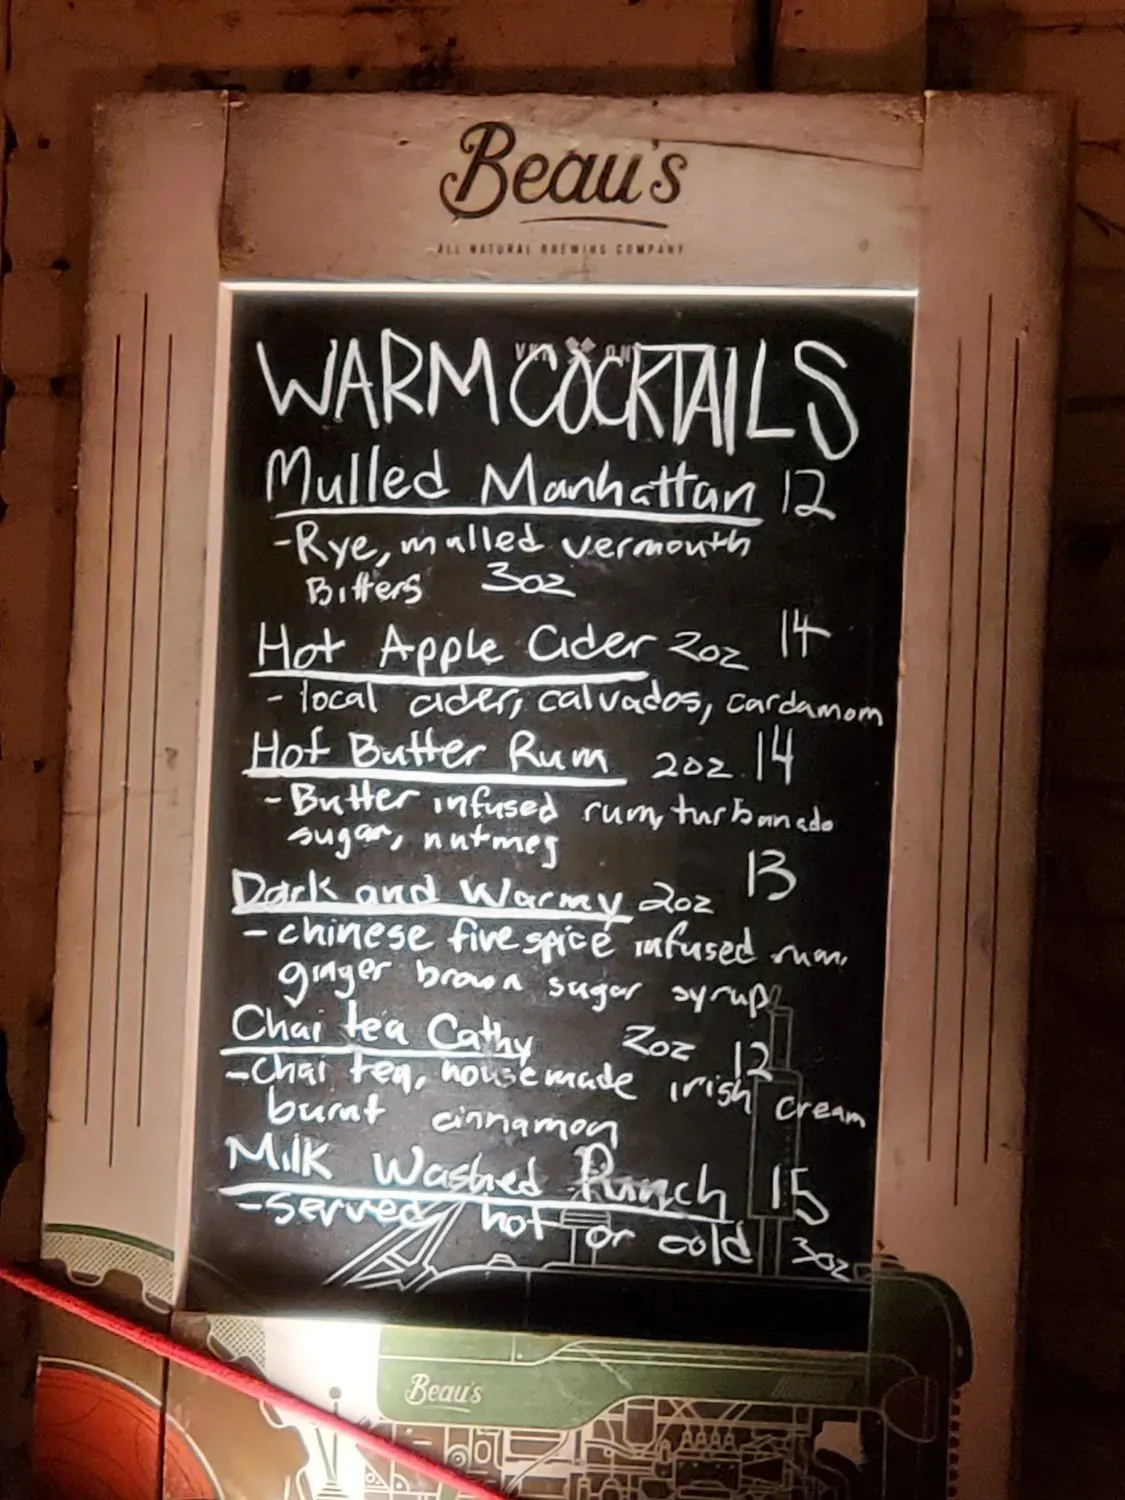 Beau's
ALL NATURAL BREWING COMPANY
WARM COCKTAILS
Mulled Manhattan 12
-Rye, mulled vermouth
Bitters 3oz
Hot Apple Cider 2oz 14
- local cider, calvados, cardamom
Hot Butter Rum 2oz 14
- Butter infused rum, turbanado
sugar, nutmeg
Dark and Warmy 2oz 13
- chinese five spice infused rum,
ginger brown sugar syrup
Chai tea Cathy 2oz 12
-Chai tea, housemade irish cream
burnt cinnamon
Milk Washed Punch 15
-served hot or cold 3oz
Beau's